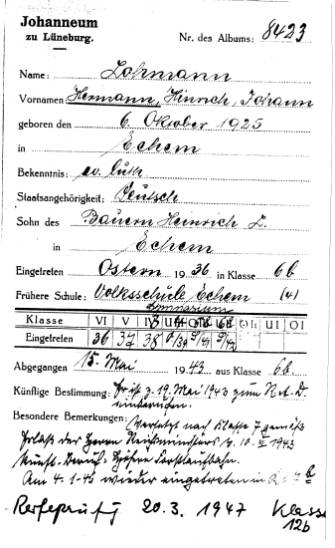 Johanneum
zu Lüneburg.
Nr. des Albums: 8423
Name: Lohmann
Vornamen Hermann, Hinrich, Johann
geboren den 6. Oktober 1925
in Echem
Bekenntnis: ev. luth
Staatsangehörigkeit: Deutsch
Sohn des Bauern Heinrich L.
in Echem
Eingetreten Ostern 1936 in Klasse 6b
Frühere Schule: Volksschule Echem (4)
Klasse VI V IV
Eingetreten 36 37 38
Abgegangen 15. Mai 1943 aus Klasse 6b
Künftige Bestimmung: 19. Mai 1943 zum R.A.D.
Besondere Bemerkungen: Versetzt nach Klasse 7 gemäß
Erlaß des Herrn Reichsministers 1943
Am 4. 1. 46 wieder eingetreten in
Reifeprüfg 20.3.1947 Klasse
12b